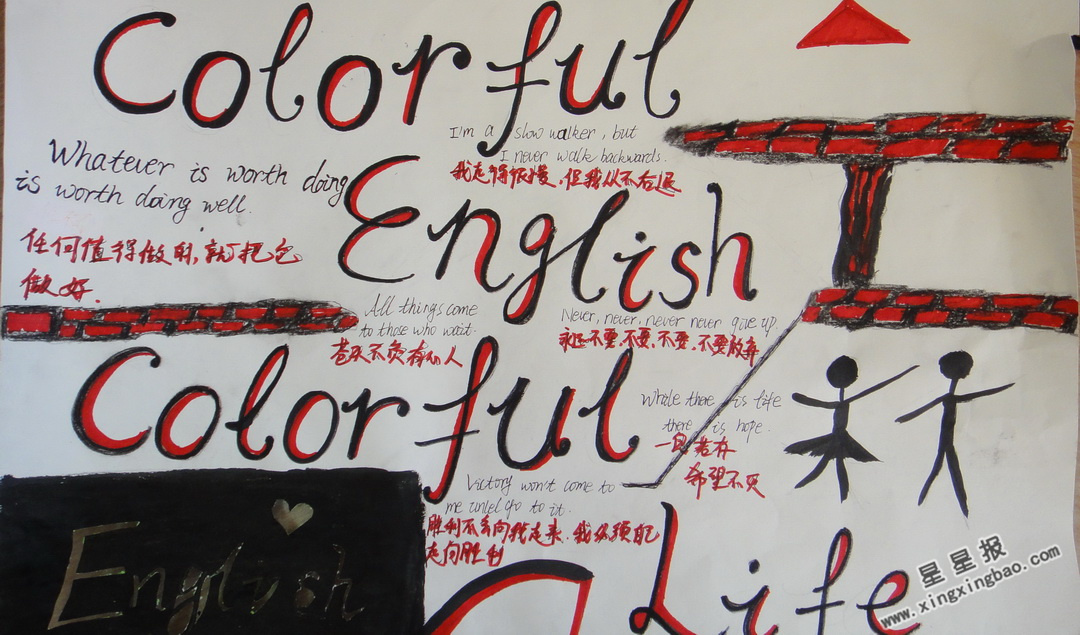 Colorful
I'm a slow walker, but
I never walk backwards.
我走得很慢，但我从不后退
Whatever is worth doing
is worth doing well.
任何值得做的，就把它
做好.
English
All things come
to those who wait.
苍天不负有心人
Never, never, never never give up.
永远不要，不要，不要，不要放弃
Colorful
While there is life
there is hope.
一息若存
希望不灭
Victory won't come to
me unlel go to it.
胜利不会向我走来，我必须自己
走向胜利
English
Life
星星报
www.xingxingbao.com